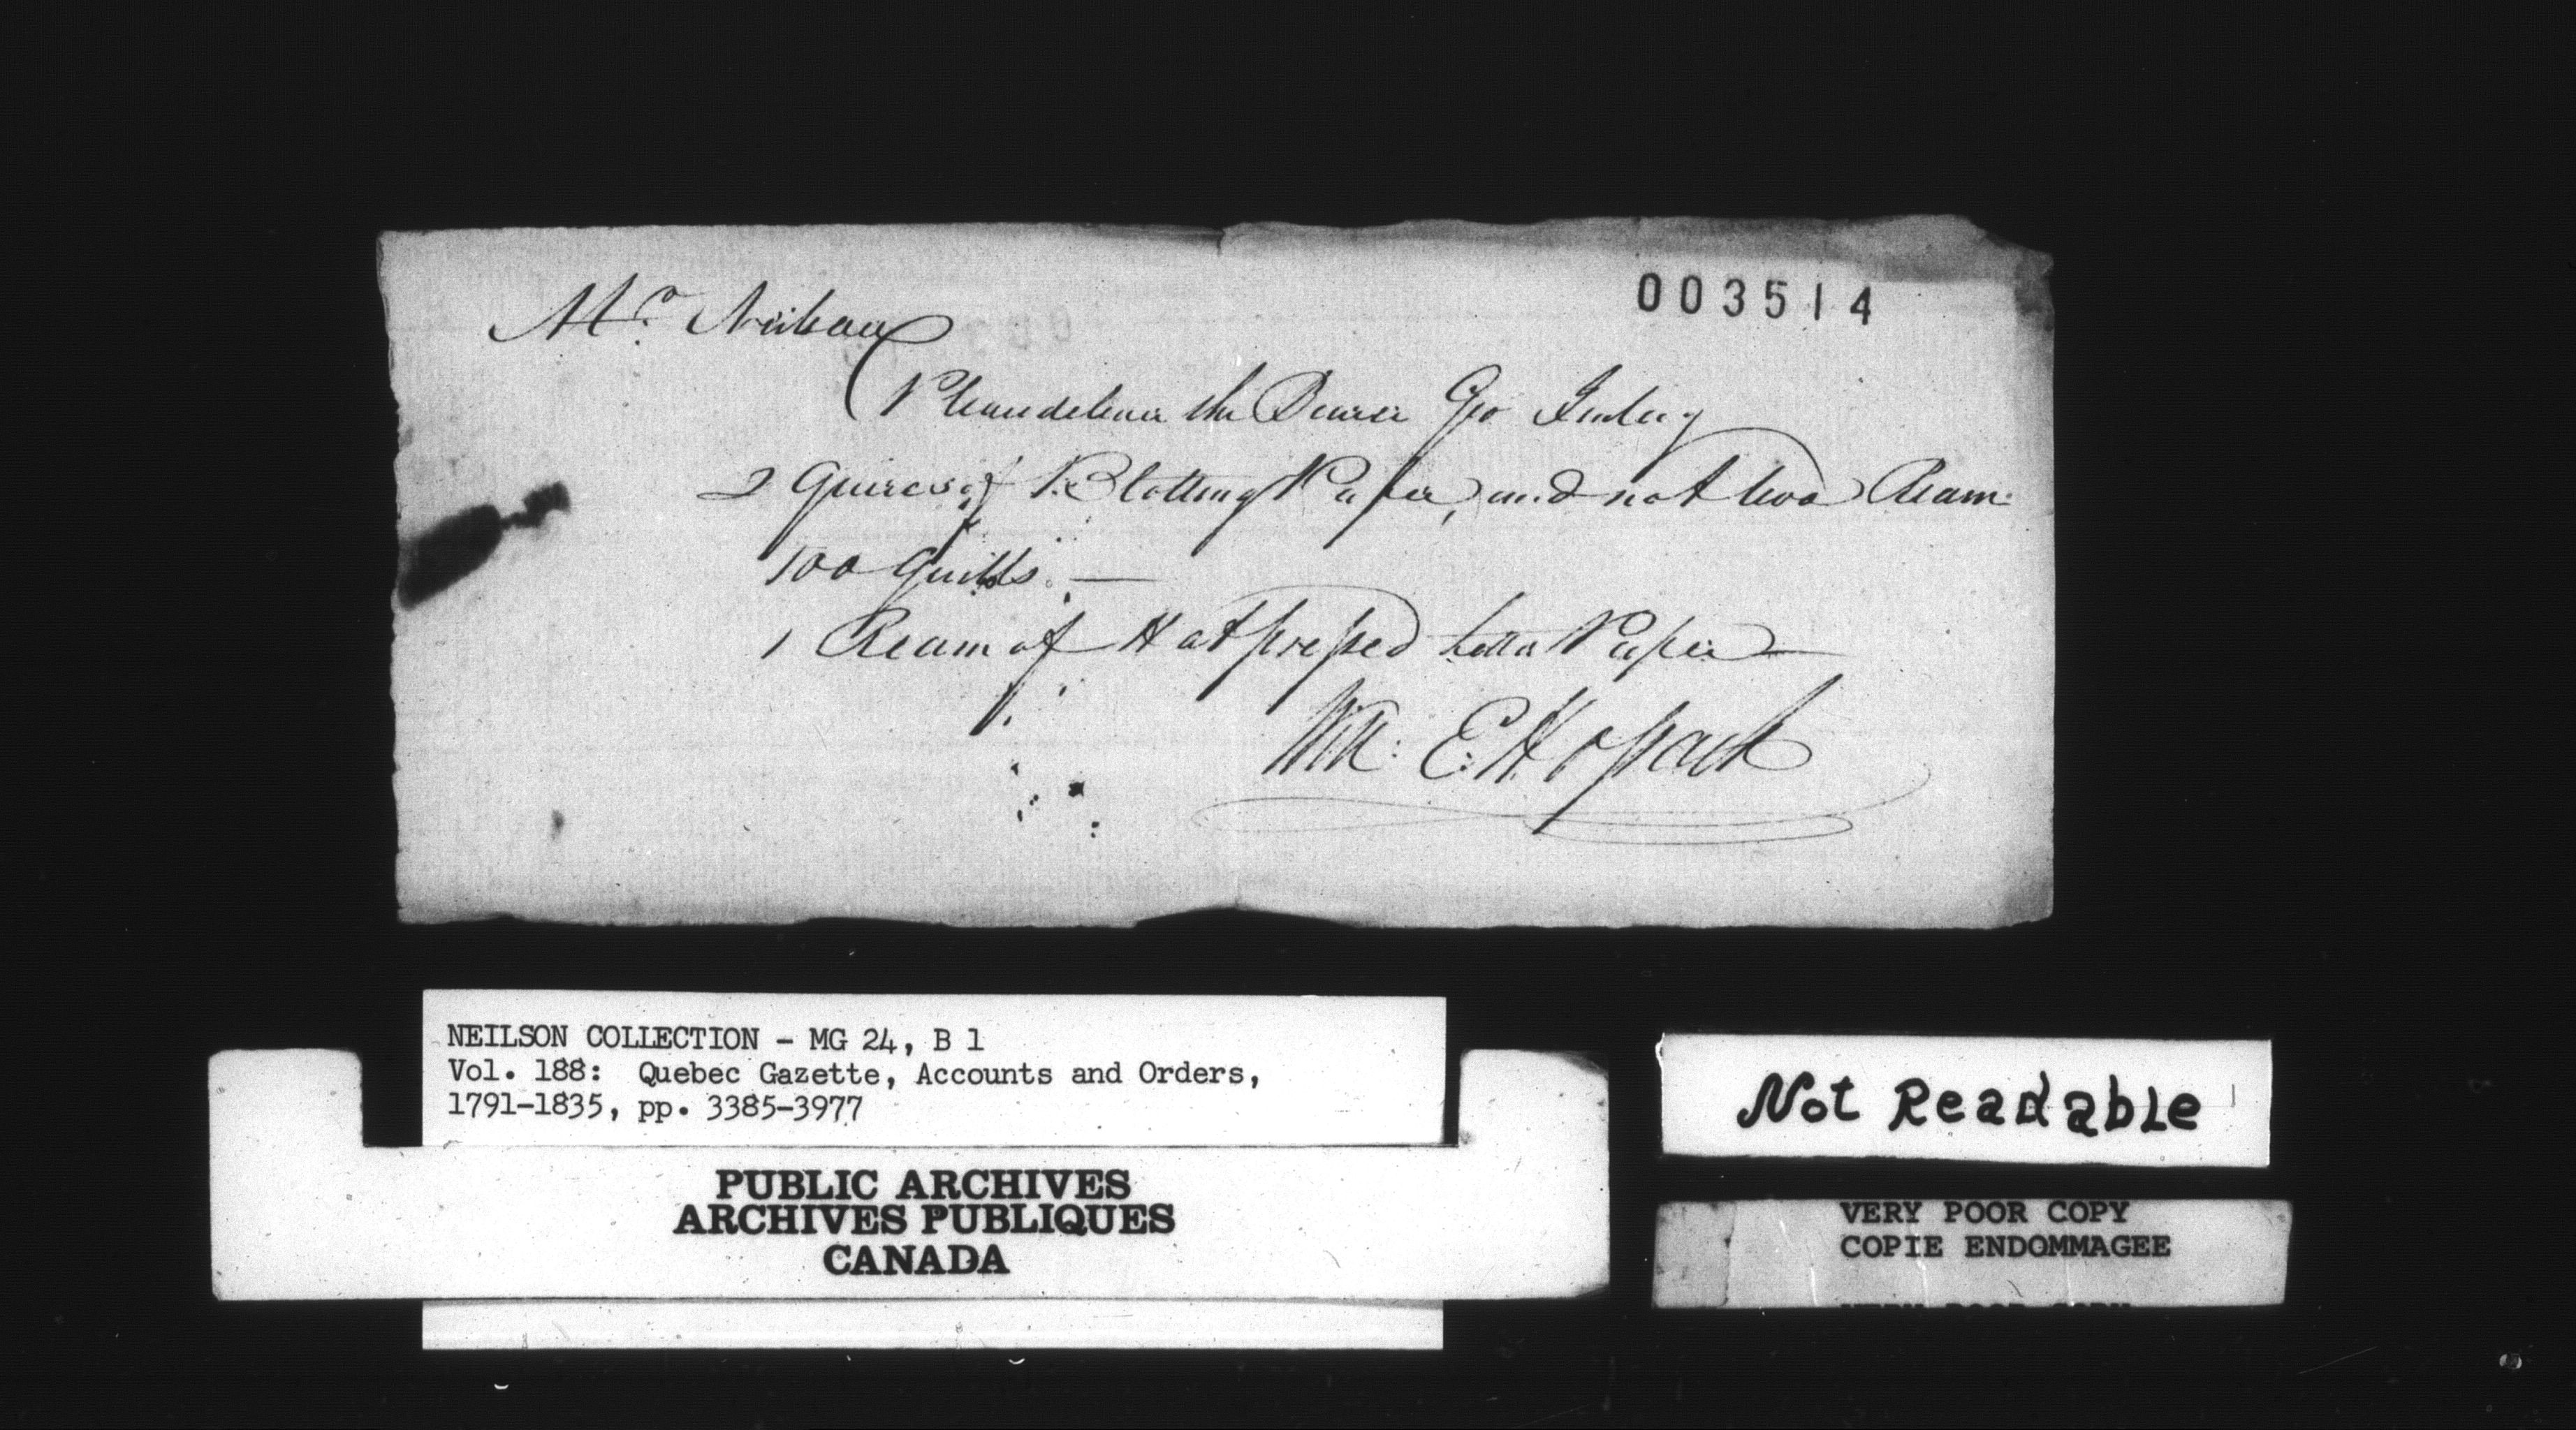 003514
Mr. Neilson
Please deliver the Bearer Geo
2 Quires of Blotting Paper, and not two Ream
100 Quills. —
1 Ream of Hotpressed Letter Paper —
Wm: E:
NEILSON COLLECTION - MG 24, B 1
Vol. 188: Quebec Gazette, Accounts and Orders,
1791-1835, pp. 3385-3977
PUBLIC ARCHIVES
ARCHIVES PUBLIQUES
CANADA
Not Readable
VERY POOR COPY
COPIE ENDOMMAGEE
VERY POOR COPY